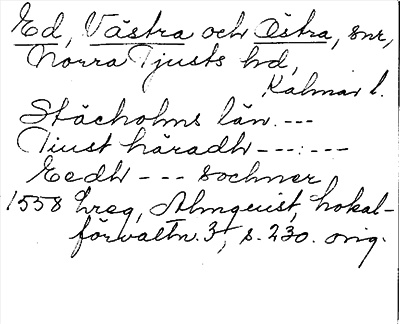 Ed, Västra och Östra, snr,
Norra Tjusts hd,
Kalmar l.
Stächolms län. ---
Tiust häradh ---:---
Eedh --- sochner
1558 hreg, Almquist, Lokal-
förvaltn. 3, s. 230. orig.